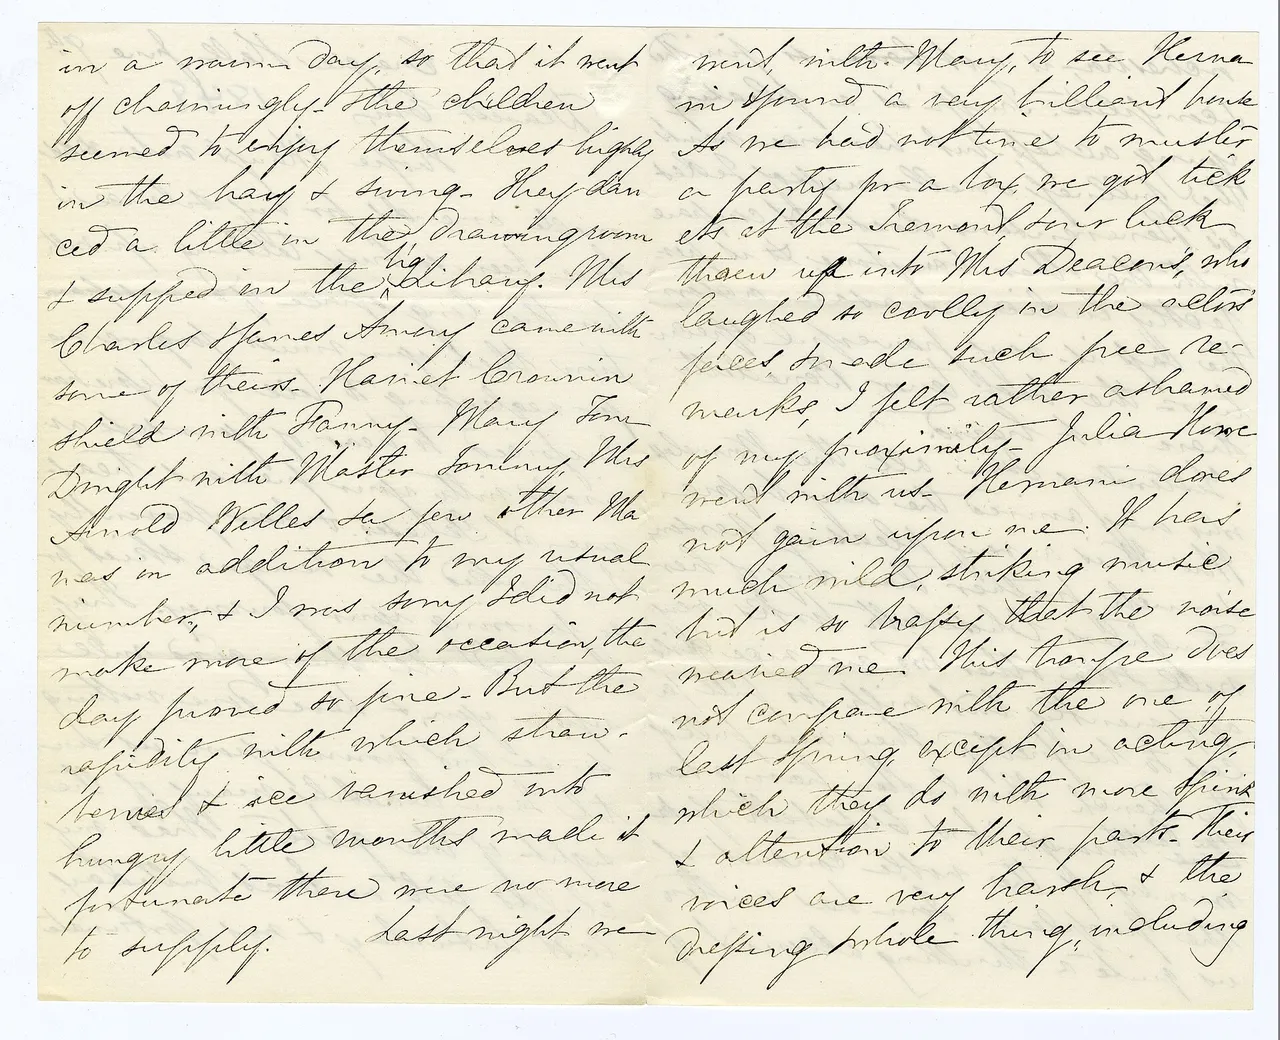 in a warm day, so that it went
off charmingly - The children
seemed to enjoy themselves highly
in the hay & swing - They dan
ced a little in the drawingroom
& supped in the big Library. Mrs
Charles & James Amory came with
some of theirs - Harriet Crownin
shield with Fanny - Mary Tom
Dwight with Master Tommy, Mrs
Arnold Welles & a few other Ma
mas in addition to my usual
number, & I was sorry I did not
make more of the occasion, the
day proved so fine - But the
rapidity with which straw-
berries & ice vanished into
hungry little mouths made it
fortunate there were no more
to supply. Last night we
went, with Mary, to see Herna
ni & found a very brilliant house
As we had not time to muster
a party for a box, we got tick
ets at the Tremont, & our luck
threw us into Mrs Deacon's, who
laughed so coolly in the actors'
faces, & made such free re-
marks, I felt rather ashamed
of my proximity - Julia Howe
went with us - Hernani does
not gain upon me. It has
much wild, striking music
but is so brassy that the noise
wearied me. This troupe does
not compare with the one of
last Spring, except in acting,
which they do with more spirit
& attention to their parts - Their
voices are very harsh, & the
dressing & whole thing, including